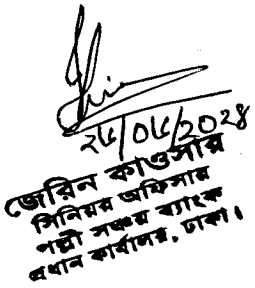 ২৮/০৮/2028
জেরিন কাওসার
সিনিয়র অফিসার
পল্লী সঞ্চয় ব্যাংক
প্রধান কার্যালয়, ঢাকা।